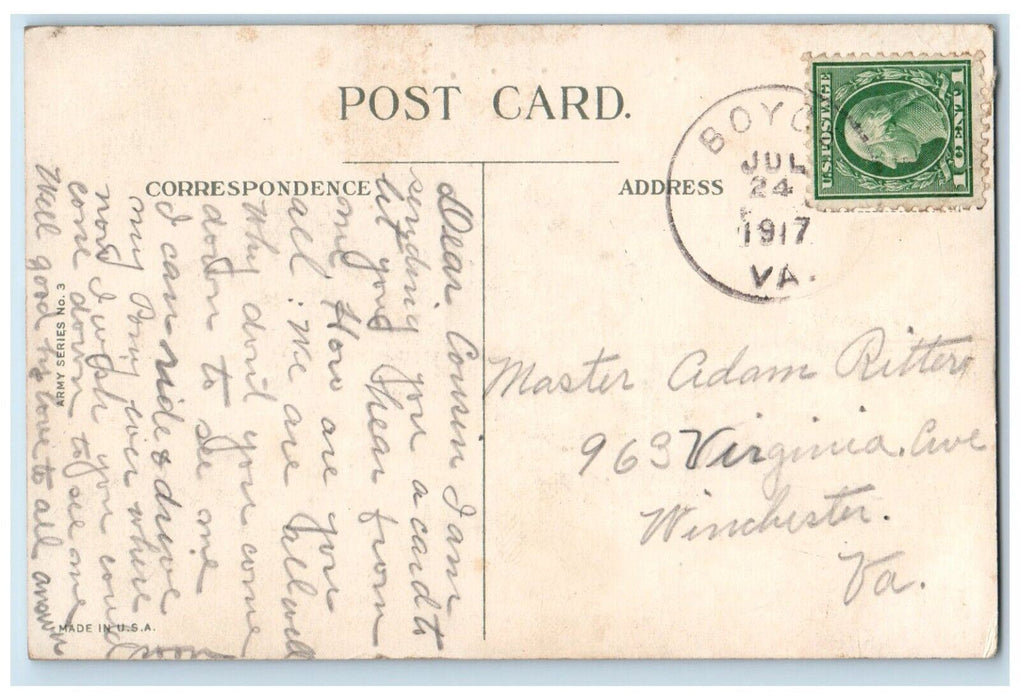 POST CARD.
CORRESPONDENCE
ADDRESS
U.S. POSTAGE
1 CENT 1
BOYC
JUL
24
1917
VA.
Dear Cousin I am
sending you a card to
let you hear from
me. How are you
all: We are all well
Why don't you come
down to see me
I can ride & drive
my Pony every where
now I wish you could
come down to see me soon
Well good by love to all
Master Adam Ritter
963 Virginia. Ave
Winchester.
Va.
ARMY SERIES No. 3
MADE IN U.S.A.